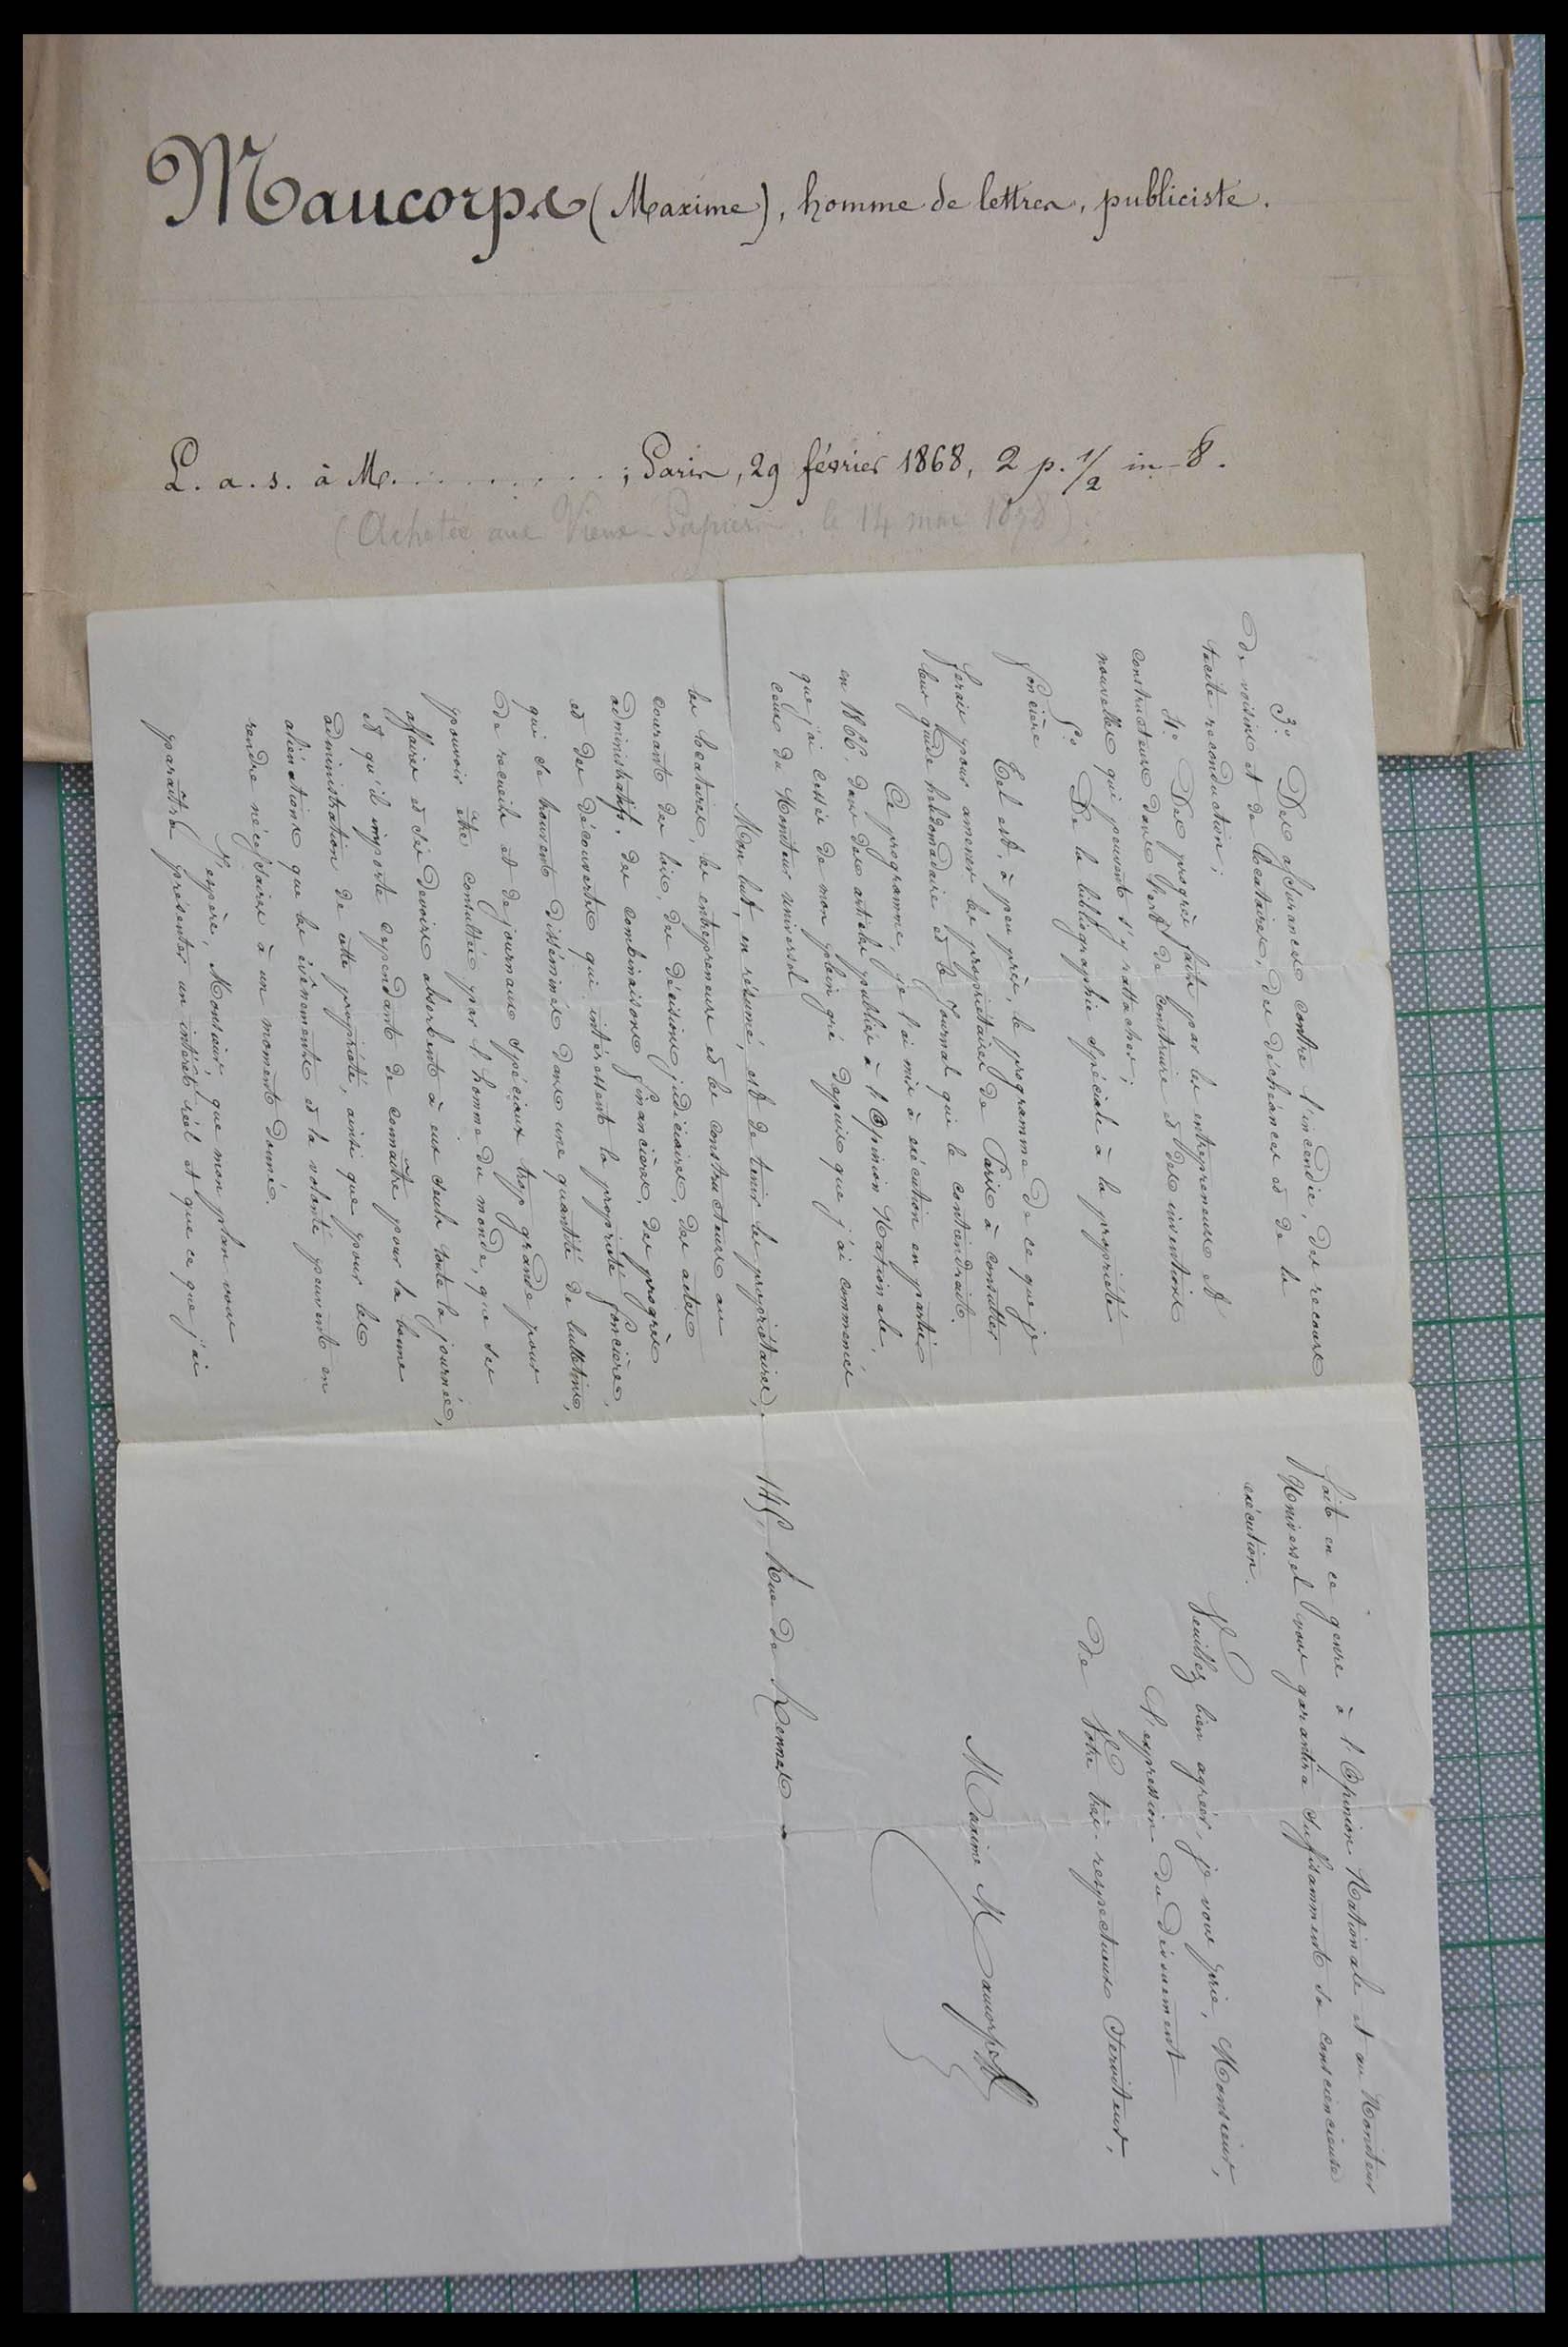 Maucorps (Maxime), homme de lettres, publiciste.
L. a. s. à M. . . . . . . . . . ; Paris, 29 février 1868, 2 p. 1/2 in-8.
(Achetée aux Vieux-Papiers, le 14 mai 1898).
3.° Des assurances contre l'incendie, des recours
de voisins et de locataires, des déchéances et de la
tacite reconduction;
4.° Des progrès faits par les entrepreneurs et
constructeurs dans l'art de construire et des inventions
nouvelles qui peuvent s'y rattacher;
5.° De la bibliographie spéciale à la propriété
foncière
Tel est, à peu près, le programme de ce que je
ferais pour amener les propriétaires de Paris à consulter
leur guide hebdomadaire et le journal qui le contiendrait.
Ce programme, je l'ai mis à exécution en partie
en 1866, dans des articles publiés à l'Opinion Nationale,
que j'ai cessés de mon plein gré depuis que j'ai commencé
ceux du Moniteur universel
Mon but, en résumé, est de tenir les propriétaires,
les locataires, les entrepreneurs et les constructeurs au
courant des lois, des décisions judiciaires, des actes
administratifs, des combinaisons financières, des progrès
et des découvertes qui intéressent la propriété foncière,
qui se trouvent disséminés dans une quantité de bulletins,
de recueils et de journaux spéciaux trop grande pour
pouvoir être consultés par l'homme du monde, que ses
affaires et ses devoirs absorbent à eux seuls toute la journée,
et qu'il importe cependant de connaître pour la bonne
administration de cette propriété, ainsi que pour les
aliénations que les évènements et la volonté peuvent en
rendre nécessaires à un moment donné.
J'espère, Monsieur, que mon plan vous
paraîtra présenter un intérêt réel et que ce que j'ai
fait en ce genre à l'Opinion Nationale et au Moniteur
Universel vous garantira suffisamment sa consciencieuse
exécution.
Veuillez bien agréer, je vous prie, Monsieur,
l'expression du dévouement
de Votre très-respectueux Serviteur,
Maxime Maucorps
145, Rue de Rennes